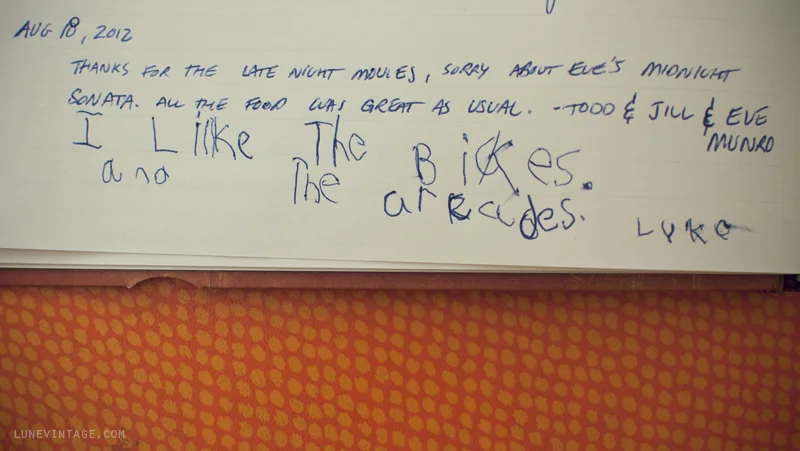 AUG 18, 2012
THANKS FOR THE LATE NIGHT MOVIES, SORRY ABOUT EVE'S MIDNIGHT
SONATA. ALL THE FOOD WAS GREAT AS USUAL. -TODD & JILL & EVE
MUNRO
I Liike The Bikes.
and The arkades.
Lyke
LUNEVINTAGE.COM